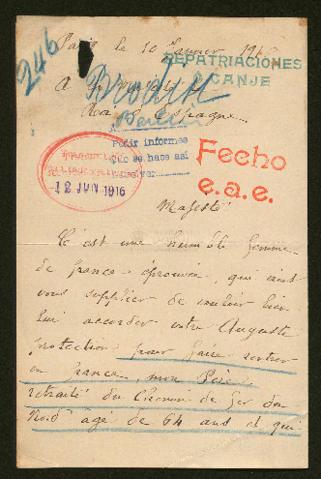 246
Paris le 10 Janvier 191
REPATRIACIONES
O CANJE
A
Brodin
Roi d'Espagne
Berlin
Pedir informes
que se hace así
Fecho
e.a.e.
12 JUN 1916
Majesté
C'est une humble femme
de france éprouvée, qui vient
vous supplier de vouloir bien
lui accorder votre Auguste
protection pour faire rentrer
en france, mon Père
retraité du Chemin de fer du
Nord agé de 64 ans et qui